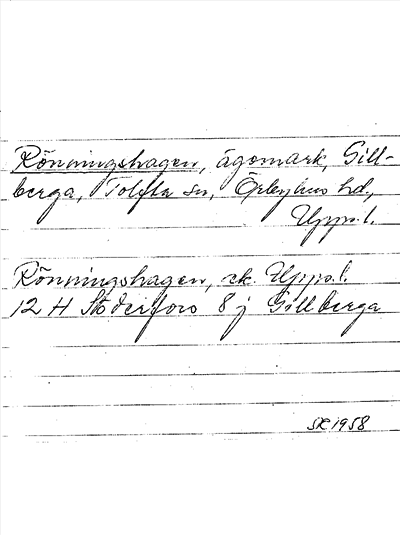 Rönningshagen, ägomark, Gill-
berga, Tolfta sn, Örbyhus hd,
Upps.l.
Rönningshagen, ek. Upps.l.
12 H Söderfors 8 j Gillberga
SK 1958